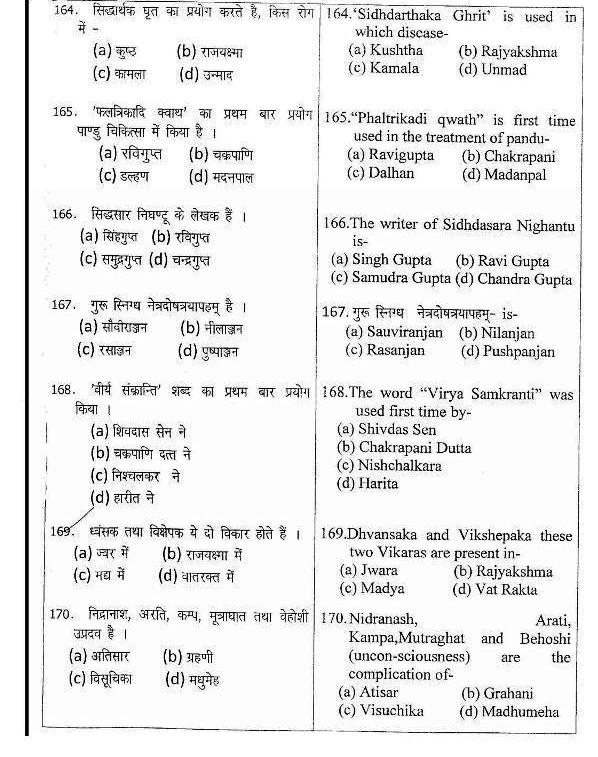 164. सिद्धार्थक घृत का प्रयोग करते है, किस रोग
में -
(a) कुष्ठ (b) राजयक्ष्मा
(c) कामला (d) उन्माद
165. 'फलत्रिकादि क्वाथ' का प्रथम बार प्रयोग
पाण्डु चिकित्सा में किया है ।
(a) रविगुप्त (b) चक्रपाणि
(c) डल्हण (d) मदनपाल
166. सिद्धसार निघण्टू के लेखक हैं ।
(a) सिंहगुप्त (b) रविगुप्त
(c) समुद्रगुप्त (d) चन्द्रगुप्त
167. गुरू स्निग्ध नेत्रदोषत्रयापहम् है ।
(a) सौवीराञ्जन (b) नीलाञ्जन
(c) रसाञ्जन (d) पुष्पाञ्जन
168. 'वीर्य संक्रान्ति' शब्द का प्रथम बार प्रयोग
किया ।
(a) शिवदास सेन ने
(b) चक्रपाणि दत्त ने
(c) निश्चलकर ने
(d) हारीत ने
169. ध्वंसक तथा विक्षेपक ये दो विकार होते हैं ।
(a) ज्वर में (b) राजयक्ष्मा में
(c) मद्य में (d) वातरक्त में
170. निद्रानाश, अरति, कम्प, मूत्राघात तथा वेहोशी
उप्रदव है ।
(a) अतिसार (b) ग्रहणी
(c) विसूचिका (d) मधुमेह
164.'Sidhdarthaka Ghrit' is used in
which discase-
(a) Kushtha (b) Rajyakshma
(c) Kamala (d) Unmad
165."Phaltrikadi qwath" is first time
used in the treatment of pandu-
(a) Ravigupta (b) Chakrapani
(c) Dalhan (d) Madanpal
166.The writer of Sidhdasara Nighantu
is-
(a) Singh Gupta (b) Ravi Gupta
(c) Samudra Gupta (d) Chandra Gupta
167. गुरू स्निग्ध नेत्रदोषत्रयापहम्- is-
(a) Sauviranjan (b) Nilanjan
(c) Rasanjan (d) Pushpanjan
168.The word "Virya Samkranti" was
used first time by-
(a) Shivdas Sen
(b) Chakrapani Dutta
(c) Nishchalkara
(d) Harita
169.Dhvansaka and Vikshepaka these
two Vikaras are present in-
(a) Jwara (b) Rajyakshma
(c) Madya (d) Vat Rakta
170. Nidranash, Arati,
Kampa,Mutraghat and Behoshi
(uncon-sciousness) are the
complication of-
(a) Atisar (b) Grahani
(c) Visuchika (d) Madhumeha